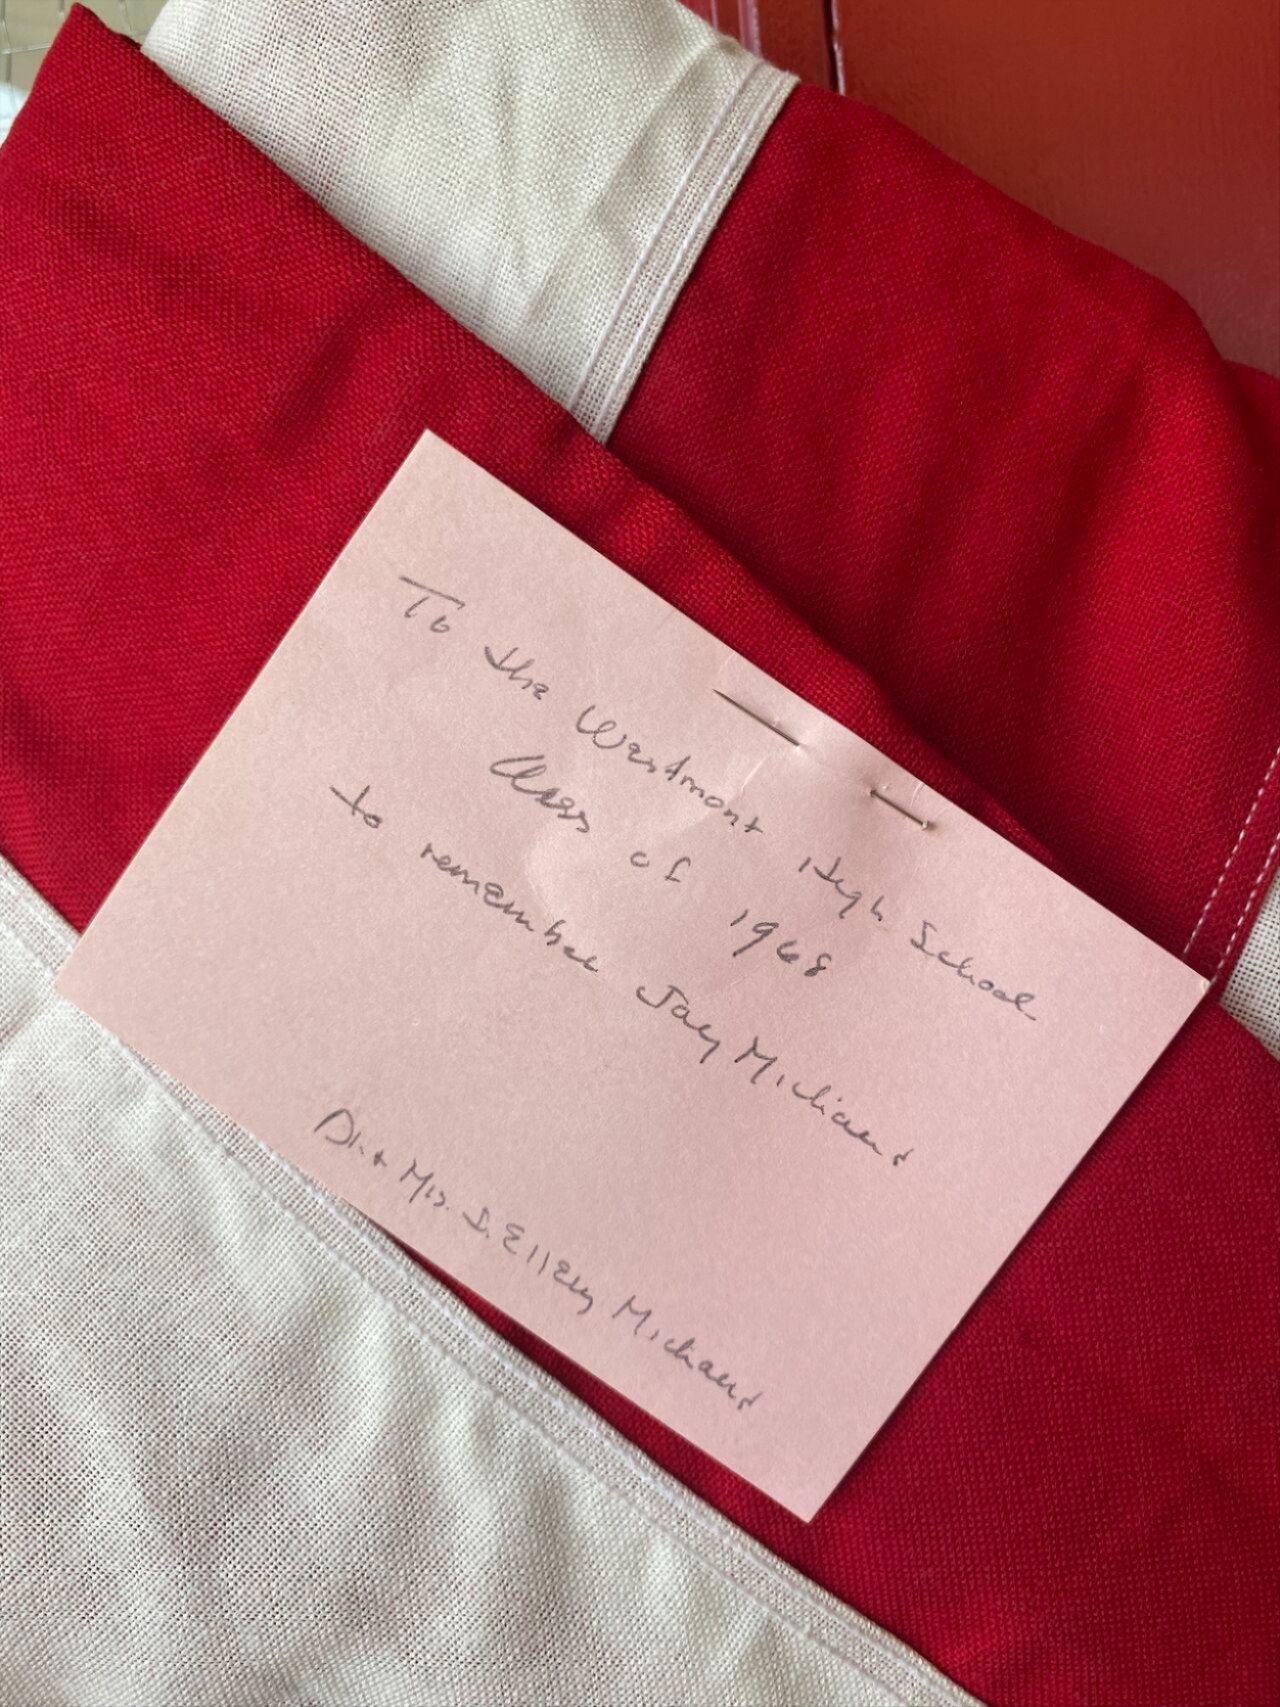 To the Westmont High School
Class of 1968
to remember Jay Michaud
Dr. + Mrs. D. Ellery Michaud